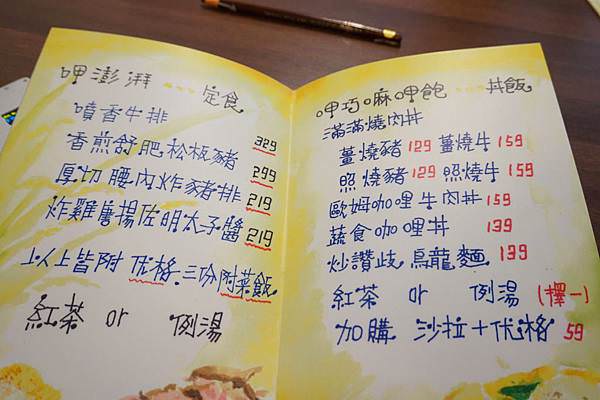 呷澎湃 --- 定食
噴香牛排 329
香煎舒肥松板豬 299
厚切腰內炸豬排 219
炸雞唐揚佐明太子醬 219
以上皆附 优格.三份附菜飯
紅茶 or 例湯
呷巧嘛呷飽 --- 丼飯
滿滿燒肉丼
薑燒豬 129 薑燒牛 159
照燒豬 129 照燒牛 159
歐姆咖哩牛肉丼 159
蔬食咖哩丼 139
炒讚歧烏龍麵 139
紅茶 or 例湯 (擇一)
加購 沙拉+优格 59